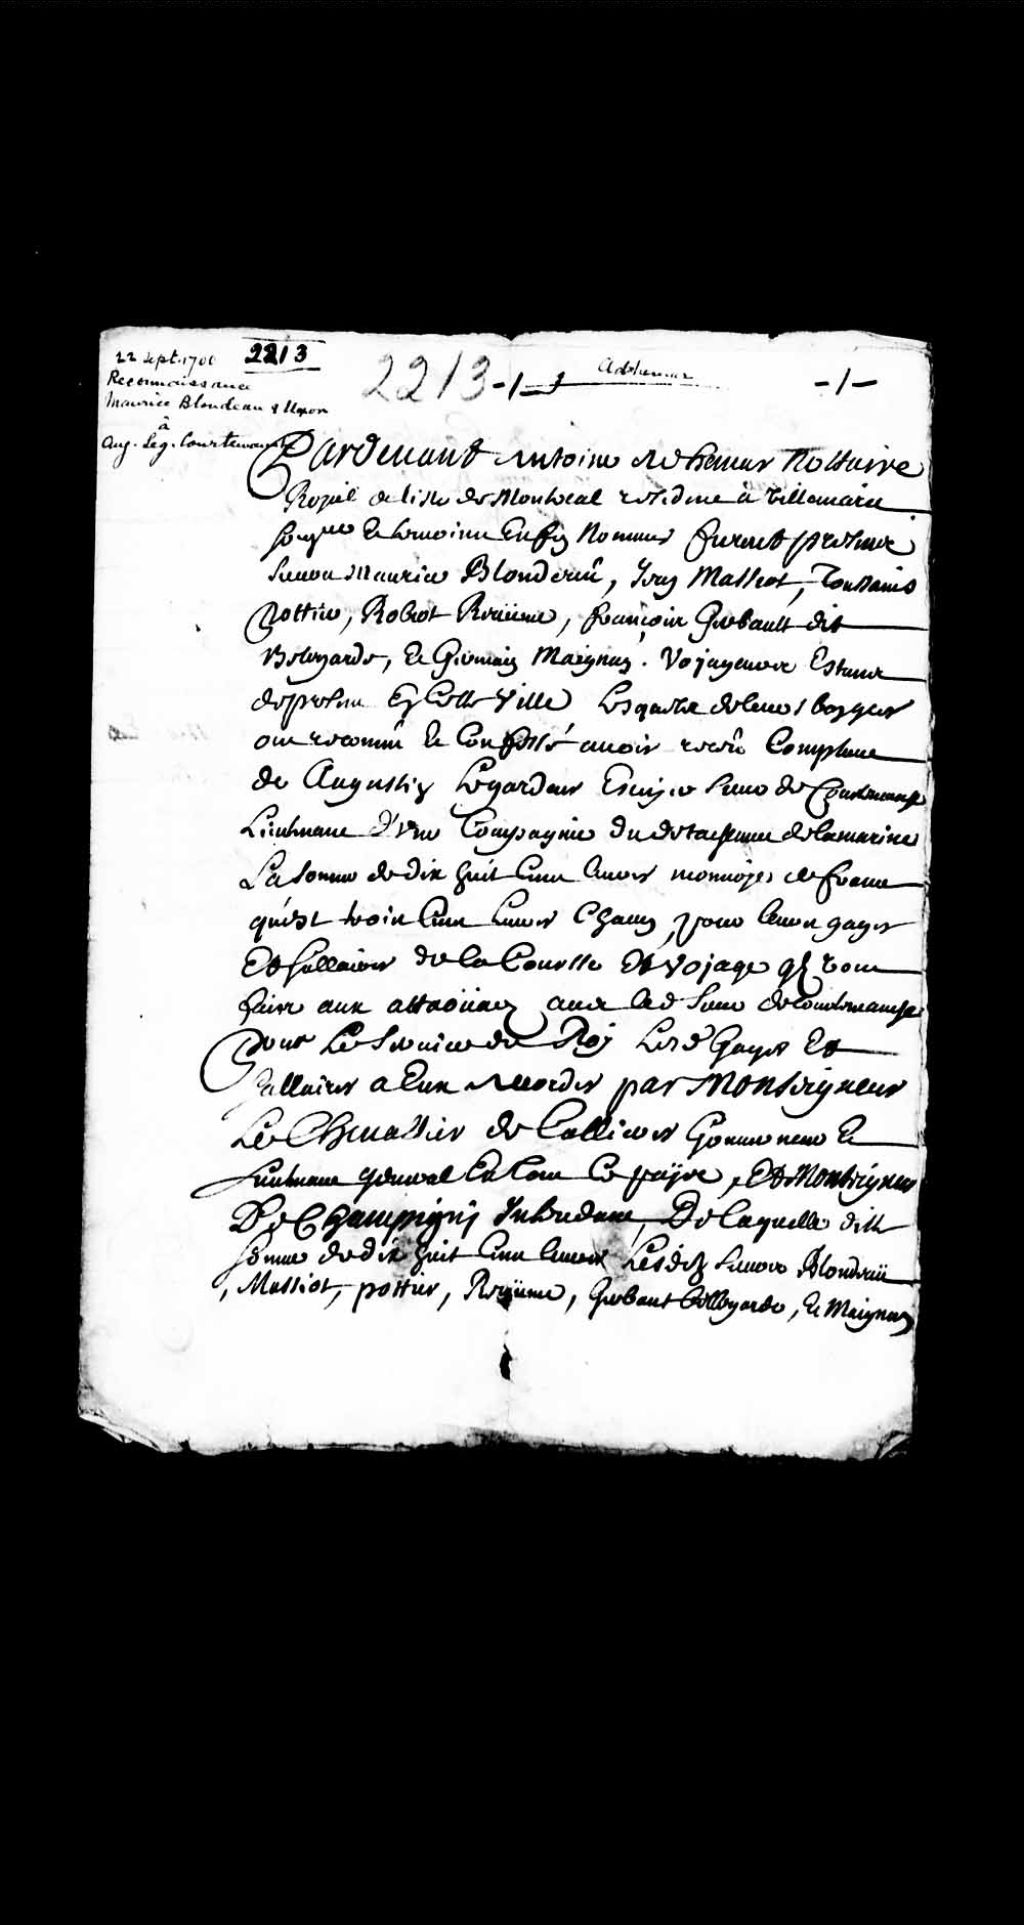 22 Sept. 1700
2213
Reconnaissance
Maurice Blondeau & Uxon
à
Aug. Leg. Courtemanche
2213 -1-
Adhemar
-1-
Pardevant Antoine Adhemar Nottaire
Royal de lisle de Montreal residant à Villemarie
soub.ne & temoins En fin Nommes furent presens
sieurs Maurice Blondeau, Jean Massiot, Toussains
Pottier, Robert Reaume, françois Guebault dit
Bellegarde, & Germain Maignan. Voyageurs Estans
de present En Cette Ville Lesquels de leurs bon gré
ont reconnu & Confessé avoir receu Comptant
de Augustin Legardeur Escuyer sieur de Courtemanche
Lieutenant d'une Compagnie du detachement de la marine
La somme de dix huit Cent livres monnoye de france
qu'est trois Cent livres Chacun, pour leurs gages
Et sallaires de la Coursse Et Voyage qls vont
faire aux attaouaes avec led. sieur de Courtemanche
Pour Le Service du Roy Lesd. Gages Et
Sallaires a Eux Accordes par Monseigneur
Le Chevallier de Callieres Gouverneur &
Lieutenant general En tout Ce païs, Et Monseigneur
De Champigny Intendant, De laquelle ditte
somme de dix huit Cent livres Lesdits sieurs Blondeau
, Massiot, pottier, Reaume, Guebaut bellegarde, & Maignan